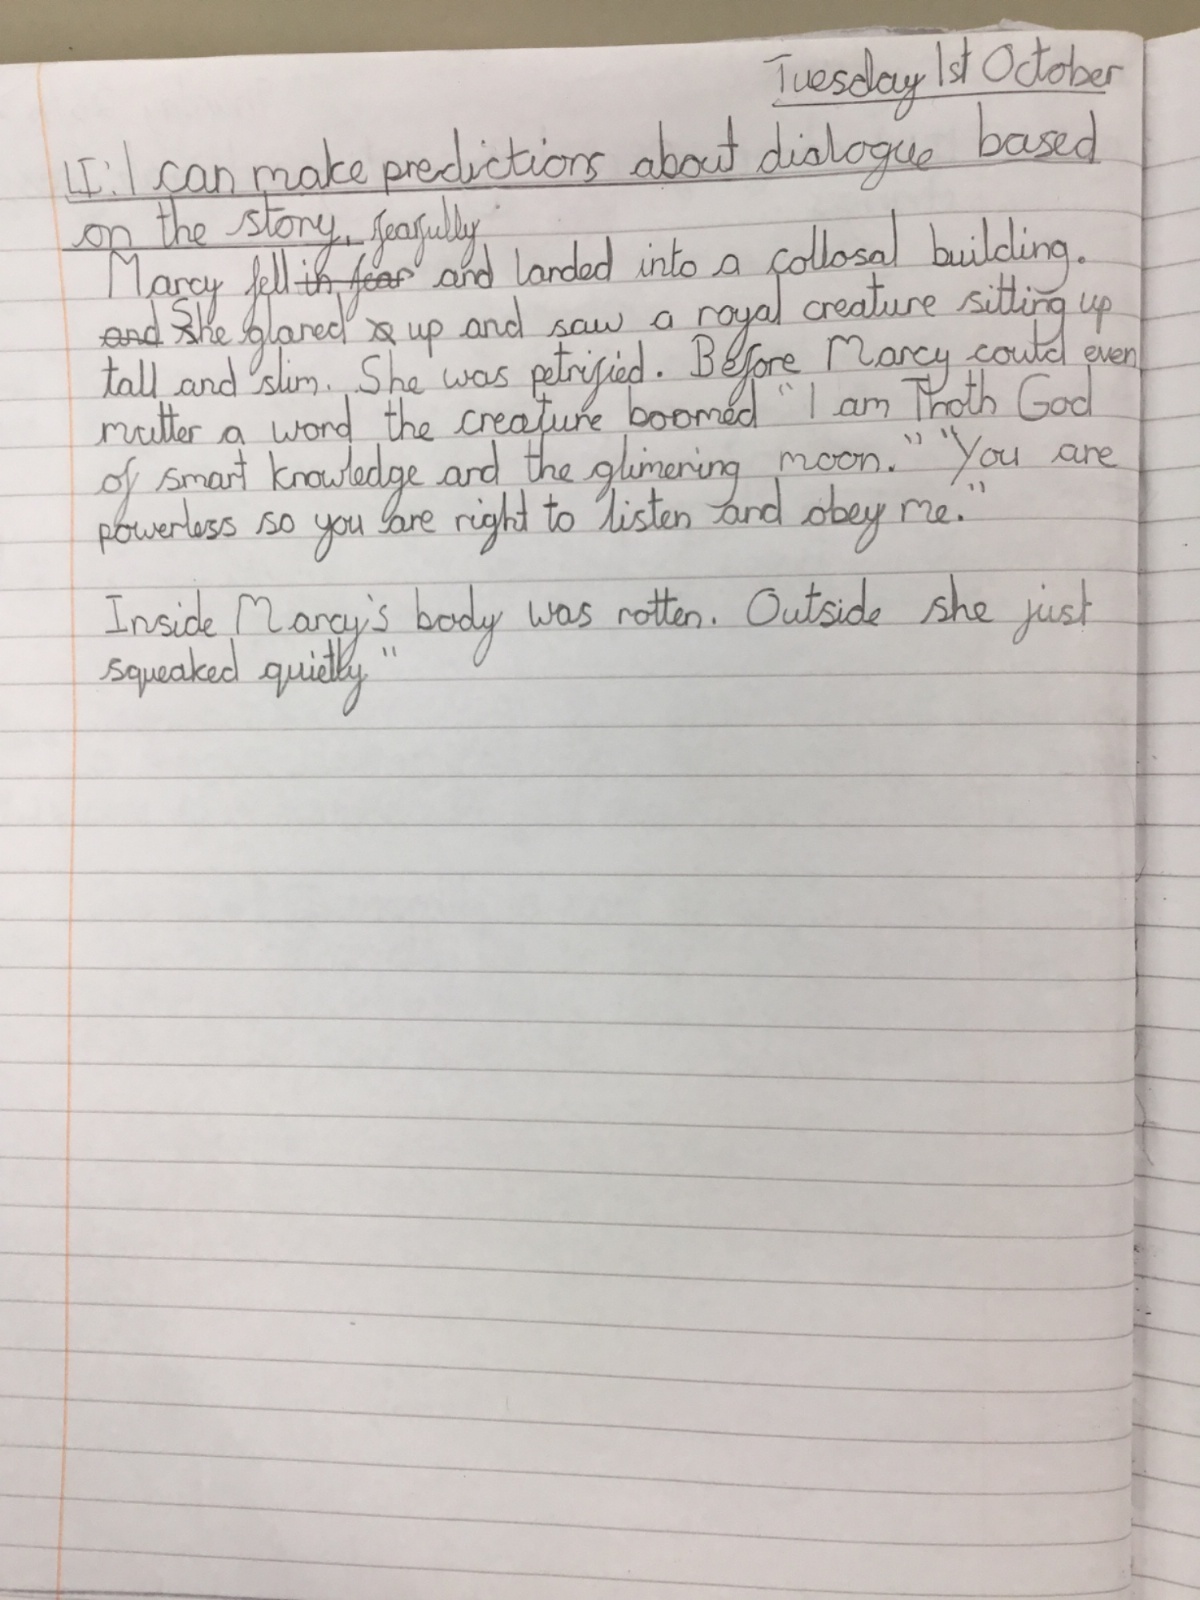 Tuesday 1st October
LI: I can make predictions about dialogue based
on the story. fearfully
Marcy fell in fear and landed into a collosal building.
and She glared up and saw a royal creature sitting up
tall and slim. She was petrified. Before Marcy could even
mutter a word the creature boomed "I am Thoth God
of smart knowledge and the glimering moon." "You are
powerless so you are right to listen and obey me."
Inside Marcy's body was rotten. Outside she just
squeaked quietly"